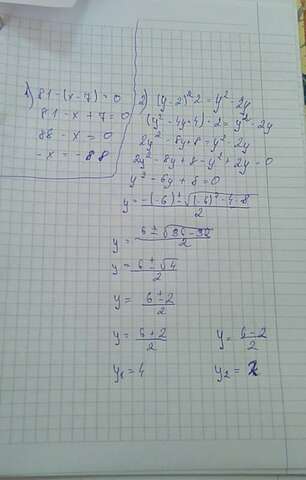 1) 81-(x-7)=0
81-x+7=0
88-x=0
-x=-88
2) (y-2)²·2=y²-2y
(y²-4y+4)·2=y²-2y
2y²-8y+8=y²-2y
2y²-8y+8-y²+2y=0
y²-6y+8=0
y=-(-6)±√(-6)²-4·8/2
y=6±√36-32/2
y=6±√4/2
y=6±2/2
y=6+2/2 y=6-2/2
y₁=4 y₂=2